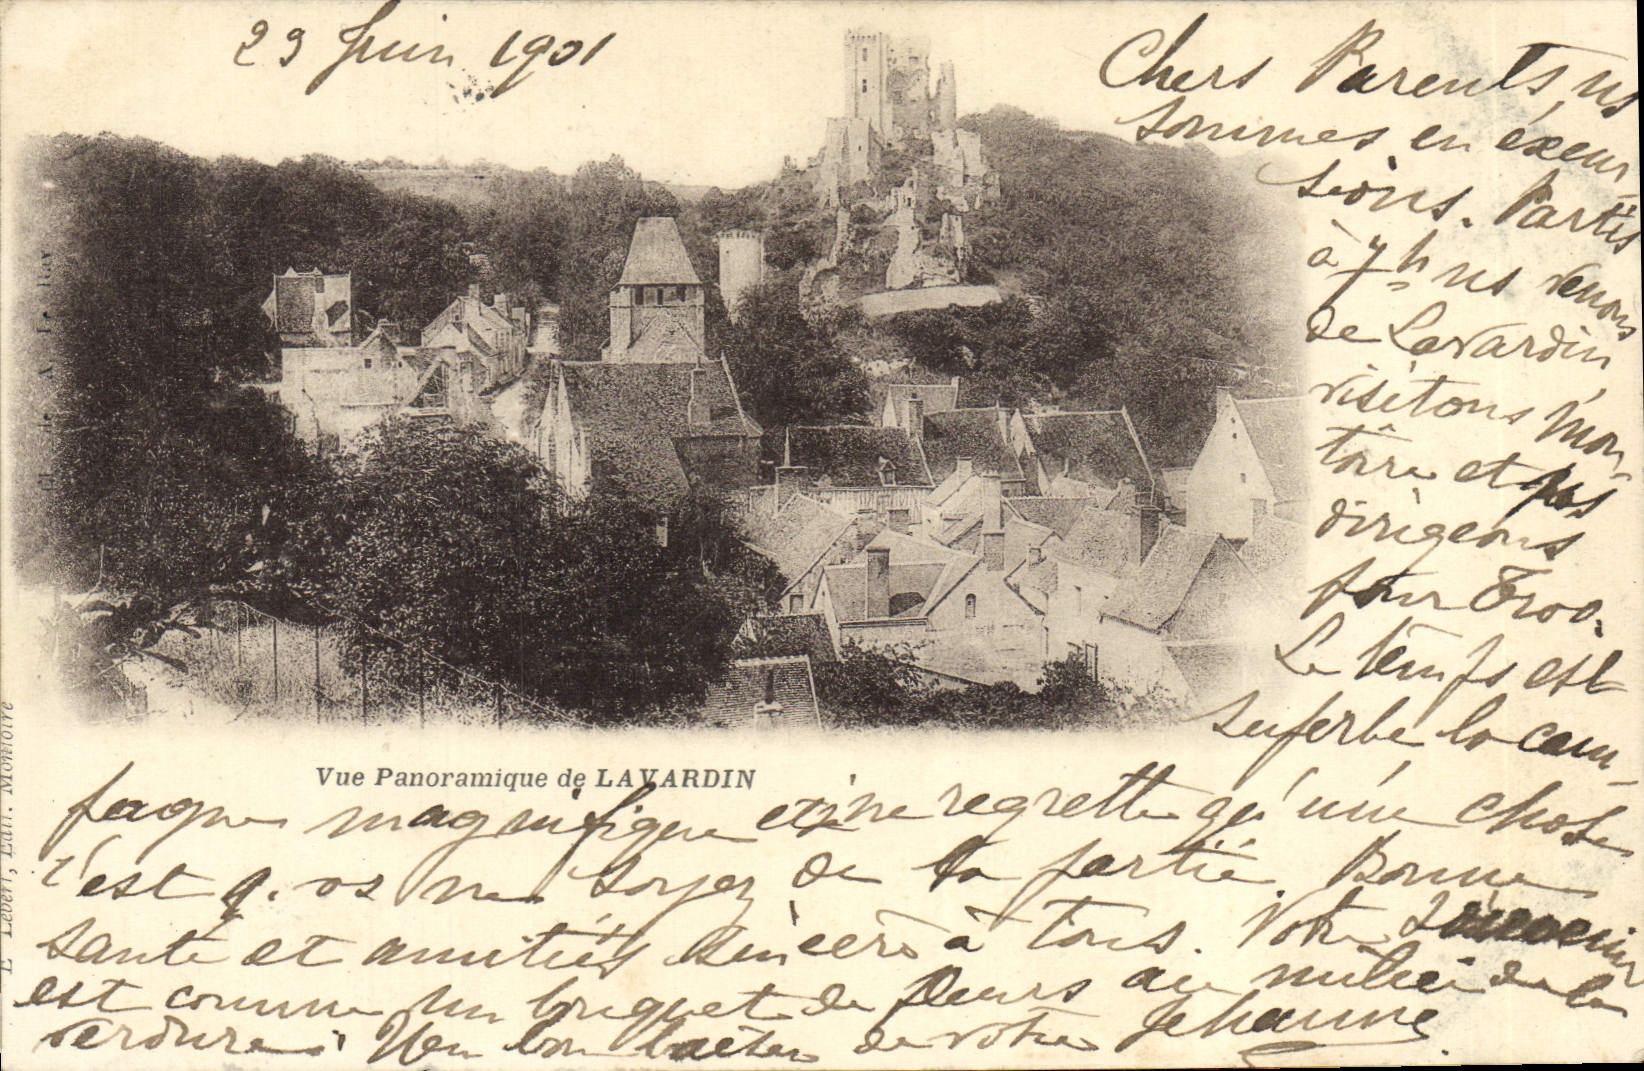 23 Juin 1901
Chers Parents, ns
sommes en excur-
sions. Partis
à 7h ns venons
de Lavardin,
visitons Mon-
toire et ns
dirigeons
pour Troo.
Le temps est
superbe la cam-
Vue Panoramique de LAVARDIN
pagne magnifique et je ne regrette qu'une chose
c'est q. vs ne soyez de la partie. Bonne
santé et amitiés sincères à tous. Votre souvenir
est comme un bouquet de fleurs au milieu de la
verdure. Un bon baiser de votre Jehanne
Cl. de A. Le
E Lebert, Edit. Montoire